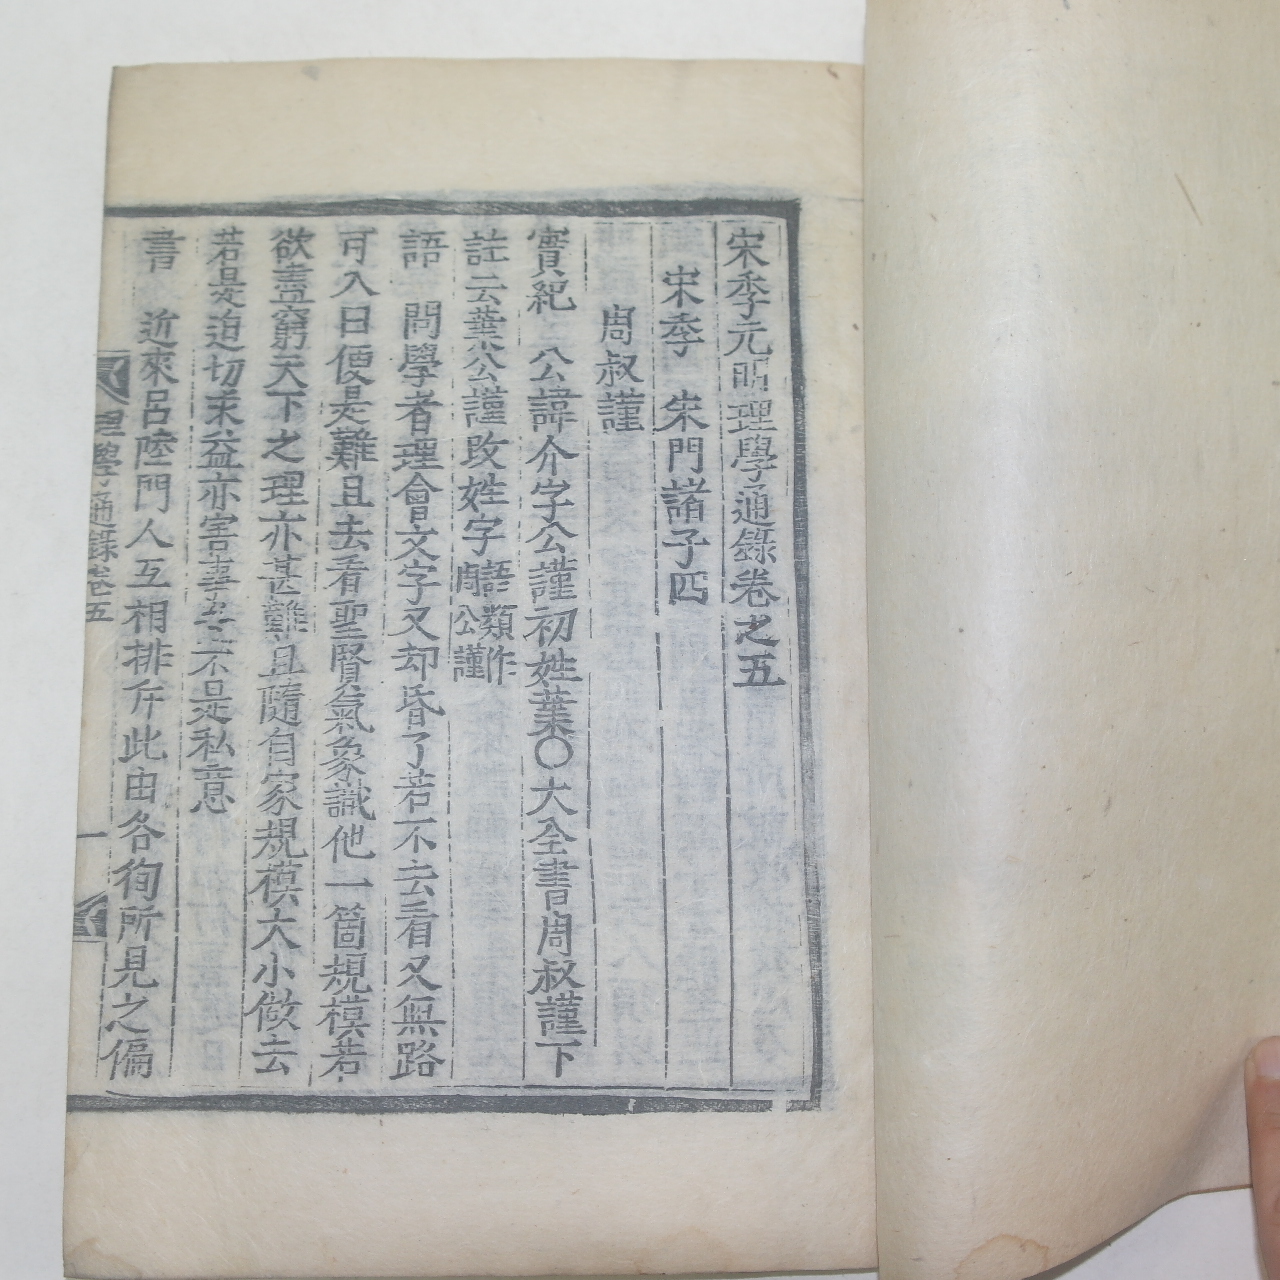 宋季元明理學通錄卷之五
宋季 朱門諸子四
周叔謹
實紀 公諱介字公謹初姓葉〇大全書周叔謹下
註云葉公謹改姓字語類作周公謹
語 問學者理會文字又却昏了若不去看又無路
可入曰便是難且去看聖賢氣象識他一箇規模若
欲盡窮天下之理亦甚難且隨自家規模大小做去
若是迫切求益亦害事豈不是私意
書 近來呂陸門人互相排斥此由各徇所見之偏
理學通錄卷五
一